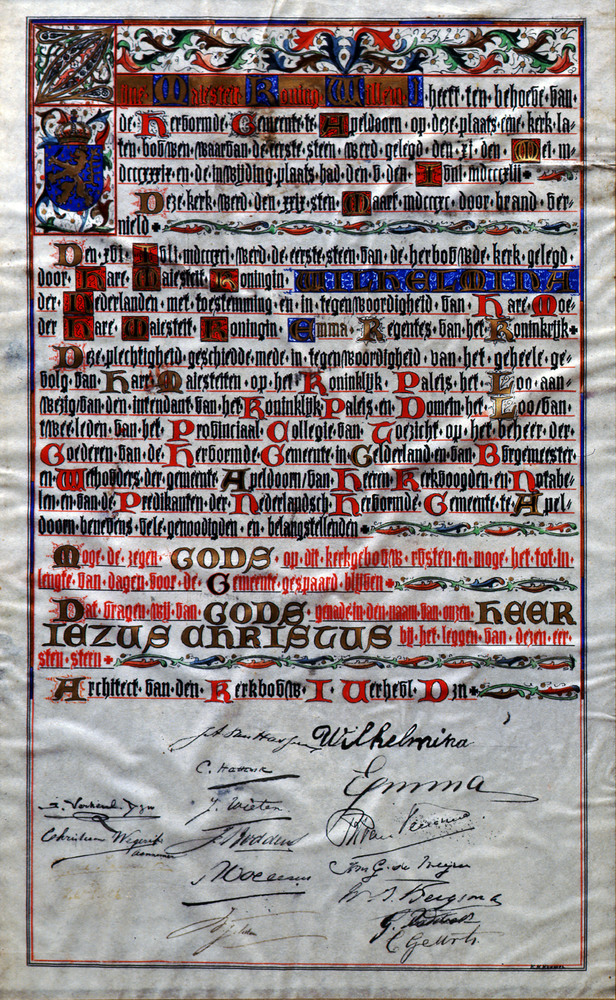 Zijne·Majesteit·Koning·Willem·I·heeft·ten·behoeve·van·
de·Hervormde·Gemeente·te·Apeldoorn·op·deze·plaats·eene·kerk·la-
ten·bouwen·waarvan·de·eerste·steen·werd·gelegd·den·XI·den·Mei·m-
dcccxxxix·en·de·inwijding·plaats·had·den·V·den·Juni·mdcccxlii
Deze·kerk·werd·den·xxix·sten·Maart·mdcccxc·door·brand·ver-
nield
Den·XVI·Juli·mdcccxci·werd·de·eerste·steen·van·de·herbouwde·kerk·gelegd·
door·Hare·Majesteit·Koningin·WILHELMINA
der·Nederlanden·met·toestemming·en·in·tegenwoordigheid·van·Hare·Moe-
der·Hare·Majesteit·Koningin·Emma·Regentes·van·het·Koninkrijk
Deze·plechtigheid·geschiedde·mede·in·tegenwoordigheid·van·het·geheele·ge-
volg·van·Hare·Majesteiten·op·het·Koninklijk·Paleis·het·Loo·aan-
wezig/van·den·intendant·van·het·Koninklijk·Paleis·en·Domein·het·Loo/van·
twee·leden·van·het·Provinciaal·Collegie·van·Toezicht·op·het·beheer·der·
Goederen·van·de·Hervormde·Gemeente·in·Gelderland·en·van·Burgemeester·
en·Wethouders·der·gemeente·Apeldoorn/van·Heeren·Kerkvoogden·en·Notabe-
len·en·van·de·Predikanten·der·Nederlandsch·Hervormde·Gemeente·te·Apel-
doorn·benevens·vele·genoodigden·en·belangstellenden
Moge·de·zegen·GODS·op·dit·kerkgebouw·rusten·en·moge·het·tot·in·
lengte·van·dagen·voor·de·Gemeente·gespaard·blijven
Dat·vragen·wij·van·GODS·genade·in·den·naam·van·onzen·HEER
IEZUS CHRISTUS bij·het·leggen·van·dezen·eer-
sten·steen
Architect·van·den·Kerkbouw·I·Verheul·Dzn
Wilhelmina
Emma
J. Verheul Dzn
Christiaan Wegerif
aannemer